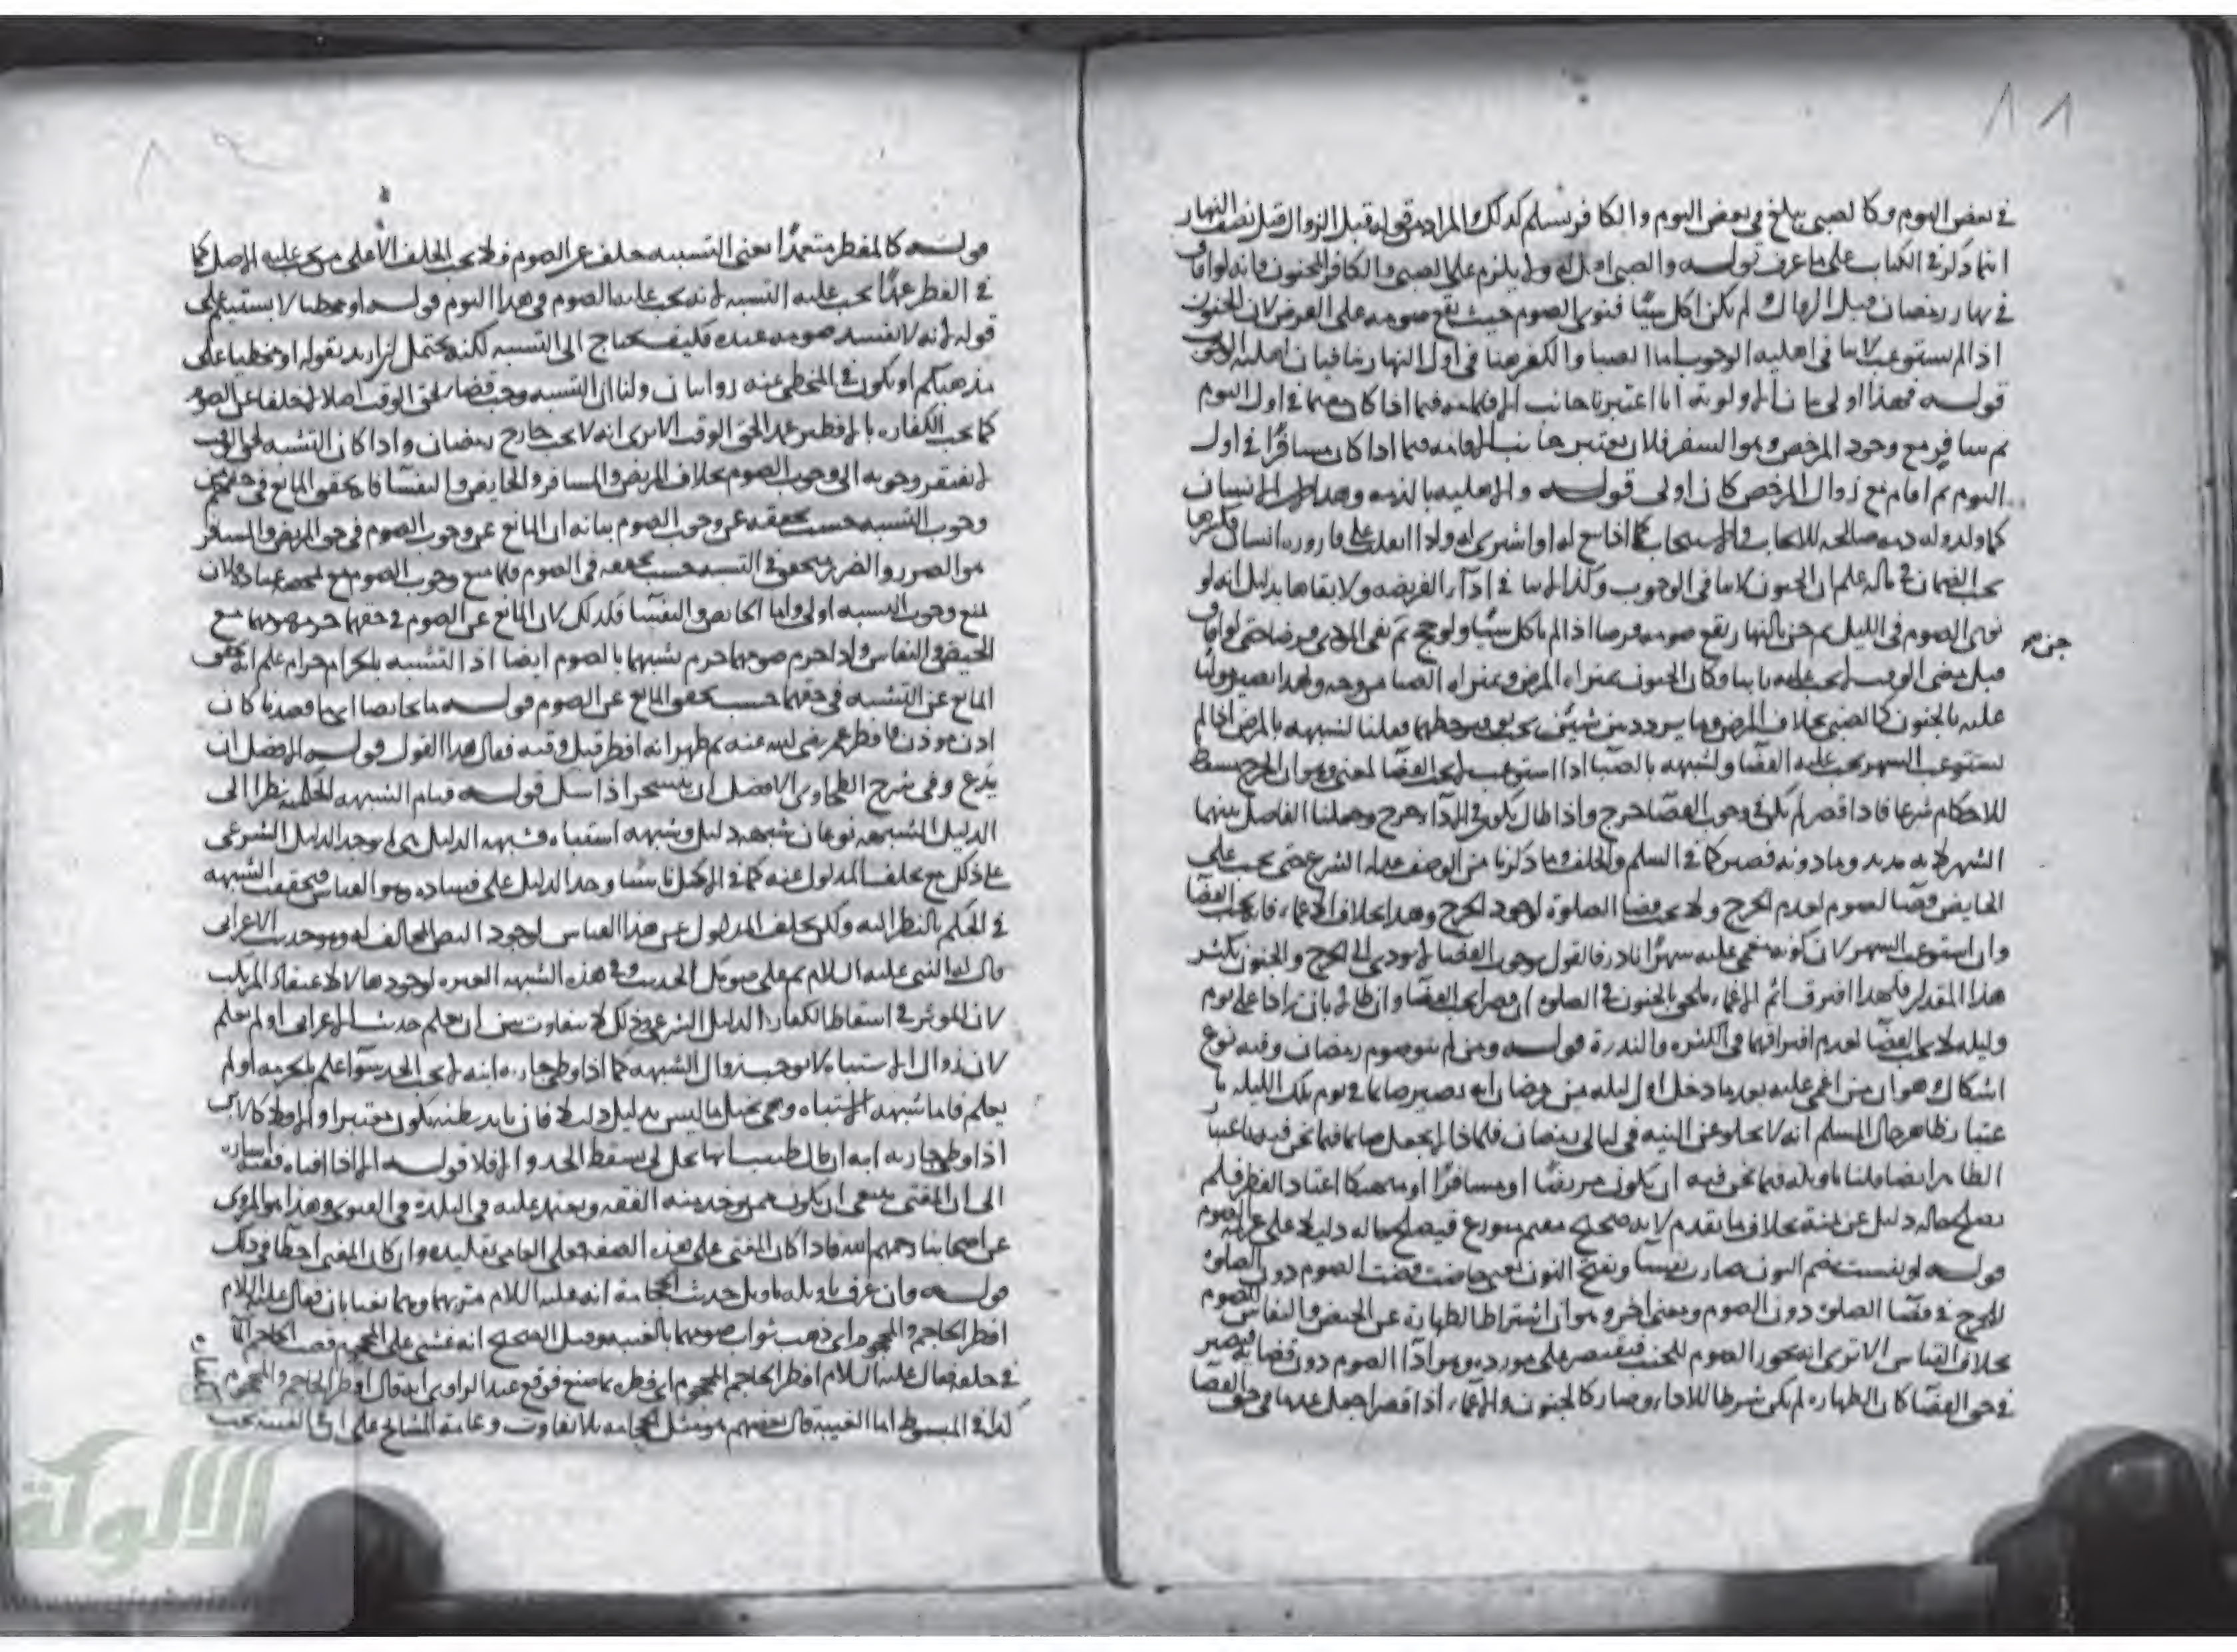 في بعض اليوم وكالصبي يبلغ في بعض اليوم والكافر يسلم كذلك والمراد من قوله قبل الزوال قبل نصف النهار
انما ذكر في الكتاب على ما عرف قوله والصبي اهل له ولا يلزم على الصبي والكافر المجنون فانه لو افاق
في نهار رمضان قبل الزوال ولم يكن اكل شيئا فنوى الصوم حيث يقع صومه على الفرض لان الجنون
اذا لم يستوعب لا ينافي اهلية الوجوب اما الصبا والكفر هنا في اول النهار ينافيان اهلية الوجوب
قوله فهذا اولى بيان الاولوية انا اعتبرنا جانب الاقامة فيما اذا كان مقيما في اول اليوم
ثم سافر مع وجود المرخص وهو السفر فلان يعتبر جانب الاقامة فيما اذا كان مسافرا في اول
اليوم ثم اقام مع زوال المرخص كان اولى قوله والاهلية بالذمة وهذا لان الانسان
كما ولد وله ذمة صالحة للايجاب والاستيجاب كما اذا بيع له او اشترى له ولذا انقلب على قارورة انسان فكسرها
يجب الضمان في ماله علم ان الجنون لا ينافي الوجوب وكذا لا ينافي اداء الفريضة ولا بقاها بدليل انه لو
نوى الصوم في الليل ثم جن بالنهار يقع صومه فرضا اذا لم ياكل شيئا ولو حج ثم بقي المودى فرضا حتى لو افاق
جن صح
قبل مضي الوقت لم يجب عليه ثانيا وكان الجنون بمنزلة المرض وبمنزلة الصبا من وجه ولهذا يصير موليا
عليه بالجنون كالصبي بخلاف المرض وما يتردد بين شيئين يجب توفير حظهما فعلنا لشبهه بالمرض اذا لم
يستوعب الشهر يجب عليه القضا ولشبهه بالصبا اذا استوعب لم يجب القضا لمعنى وهو ان الحرج مسقط
للاحكام شرعا فاذا قصر لم يكن في وجوب القضا حرج واذا طال يكون في الاداء حرج وجعلنا الفاصل بينهما
الشهر لانه مديد وما دونه قصير كما في السلم والحلف وما ذكرنا من الوصف علله الشرع حتى يجب على
الحايض قضا الصوم لعدم الحرج ولا يجب قضا الصلوة لوجود الحرج وهذا بخلاف الاغماء فانه يجب القضا
وان استوعب الشهر لان كونه مغمى عليه شهرا نادر فالقول بوجوب القضا لا يودي الى الحرج والجنون يكثر
هذا المقدار فلهذا افترقا ثم الاغماء ملحق بالجنون في الصلوة ان قصر يجب القضا وان طال بان زاد على يوم
وليلة لا يجب القضا لعدم افتراقهما في الكثرة والندرة قوله ومن لم ينو صوم رمضان وفيه نوع
اشكال وهو ان من اغمي عليه بعد ما دخل اول ليلة من رمضان انه يصير صايما في يوم تلك الليلة با
عتبار ظاهر حال المسلم انه لا يخلو عن النية في ليالي رمضان فلماذا لم يجعل صايما فيما نحن فيه باعتبار
الظاهر ايضا قلنا تاويله فيما نحن فيه ان يكون مريضا او مسافرا او متهتكا اعتاد الفطر فلم
يصلح حاله دليل عن نيته بخلاف ما تقدم لانه صحيح مقيم متورع فيصلح حاله دليلا على عزيمة الصوم
قوله او نفست بضم النون صارت نفيسا وبفتح النون اي حاضت قضت الصوم دون الصلوة
للحرج في قضا الصلوة دون الصوم وبمعنى اخر وهو ان اشتراط الطهارة عن الحيض والنفاس للصوم
بخلاف القياس الا ترى انه يجوز الصوم للجنب فيقتصر على مورده وهو اداء الصوم دون قضائه فيصير
في حق القضا كان الطهارة لم يكن شرطا للاداء وصار كالجنون والاغماء اذا قصرا جعل عدما في حق القضا
قوله كالمفطر متعمدا يعني التشبه خلف عن الصوم فلا يجب الخلف الا على من يجب عليه الاصل كما
في الفطر عمدا يجب عليه التشبه لانه يجب عليه الصوم في هذا اليوم قوله او مخطيا لا يستقيم على
قوله لانه لا يفسد صومه عنده فكيف يحتاج الى التشبه لكنه يحتمل ان اراد بقوله او مخطيا على
مذهبكم او يكون في المخطي عنه روايتان ولنا ان التشبه وجب قضاء لحق الوقت اصلا لا خلفا عن الصوم
كما يجب الكفارة بالافطار عمدا لحق الوقت الا ترى انه لا يجب خارج رمضان واذا كان التشبه لحق الوقت
لا يفتقر وجوبه الى وجوب الصوم بخلاف المريض والمسافر والحايض والنفسا فانه تحقق المانع في حقهم عن
وجوب التشبه حسب تحققه عن وجوب الصوم بيانه ان المانع عن وجوب الصوم في حق المريض والمسافر
هو الضرر والضرر يتحقق في التشبه حسب تحققه في الصوم فلما منع وجوب الصوم مع عبادة فلان
يمنع وجوب التشبه اولى واما الحايض والنفسا فكذلك لان المانع عن الصوم في حقهما حرمة صومهما مع
الحيض والنفاس واذا حرم صومهما حرم تشبههما بالصوم ايضا اذ التشبه بالحرام حرام علم انه تحقق
المانع عن التشبه في حقهما حسب تحقق المانع عن الصوم قوله ما تجانفنا اي ما قصدنا كان
اذن موذن فافطر عمر رضي الله عنه ثم ظهر انه افطر قبل وقته فقال هذا القول قوله الافضل ان
يدع وفي شرح الطحاوي الافضل ان يتسحر اذا شك قوله قيام الشبهة الحكمية نظرا الى
الدليل الشبهة نوعان شبهة دليل وشبهة اشتباه فشبهة الدليل ان يوجد الدليل الشرعي
على ذلك مع تخلف المدلول عنه كما في الاكل ناسيا وجد الدليل على فساده وهو القياس فتحققت الشبهة
في الحكم بالنظر اليه ولكن تخلف المدلول عن هذا القياس لوجود النص المخالف له وهو حديث الاعرابي
قال له النبي عليه السلام تم على صومك الحديث وفي هذه الشبهة العبرة لوجودها لا لاعتقاد المرتكب
لان الموثر في اسقاط الكفارة الدليل الشرعي وذلك لا يتفاوت بين ان يعلم حديث الاعرابي او لم يعلم
لان زوال الاشتباه لا يوجب زوال الشبهة كما اذا وطي جارية ابنه لا يجب الحد سواء علم بالحرمة او لم
يعلم فاما شبهة الاشتباه وهي تخيل ما ليس بدليل دليلا فان تايد بظنه يكون معتبرا والا فلا كالابن
اذا وطي جارية ابيه ان قال ظننت انها تحل لي يسقط الحد والا فلا قوله الا اذا افتاه فقيه اشارة
الى ان المفتي ينبغي ان يكون ممن يوخذ منه الفقه ويعتمد عليه في البلدة في الفتوى وهذا هو المروي
عن اصحابنا رحمهم الله فاذا كان المفتي على هذه الصفة فعلى العامي تقليده وان كان المفتي اخطا في ذلك
قوله وان عرف تاويله تاويل حديث الحجامة انه عليه السلام مر بهما وهما يغتابان فقال عليه السلام
افطر الحاجم والمحجوم اي ذهب ثواب صومهما بالغيبة وقيل الصحيح انه غشي على المحجوم فصب الحاجم الماء
في حلقه فقال عليه السلام افطر الحاجم المحجوم اي فطره بما صنع فوقع عند الراوي انه قال افطر الحاجم والمحجوم
كذا في المبسوط اما الغيبة قال بعضهم هو مثل الحجامة بلا تفاوت وعامة المشايخ على ان في الغيبة يجب